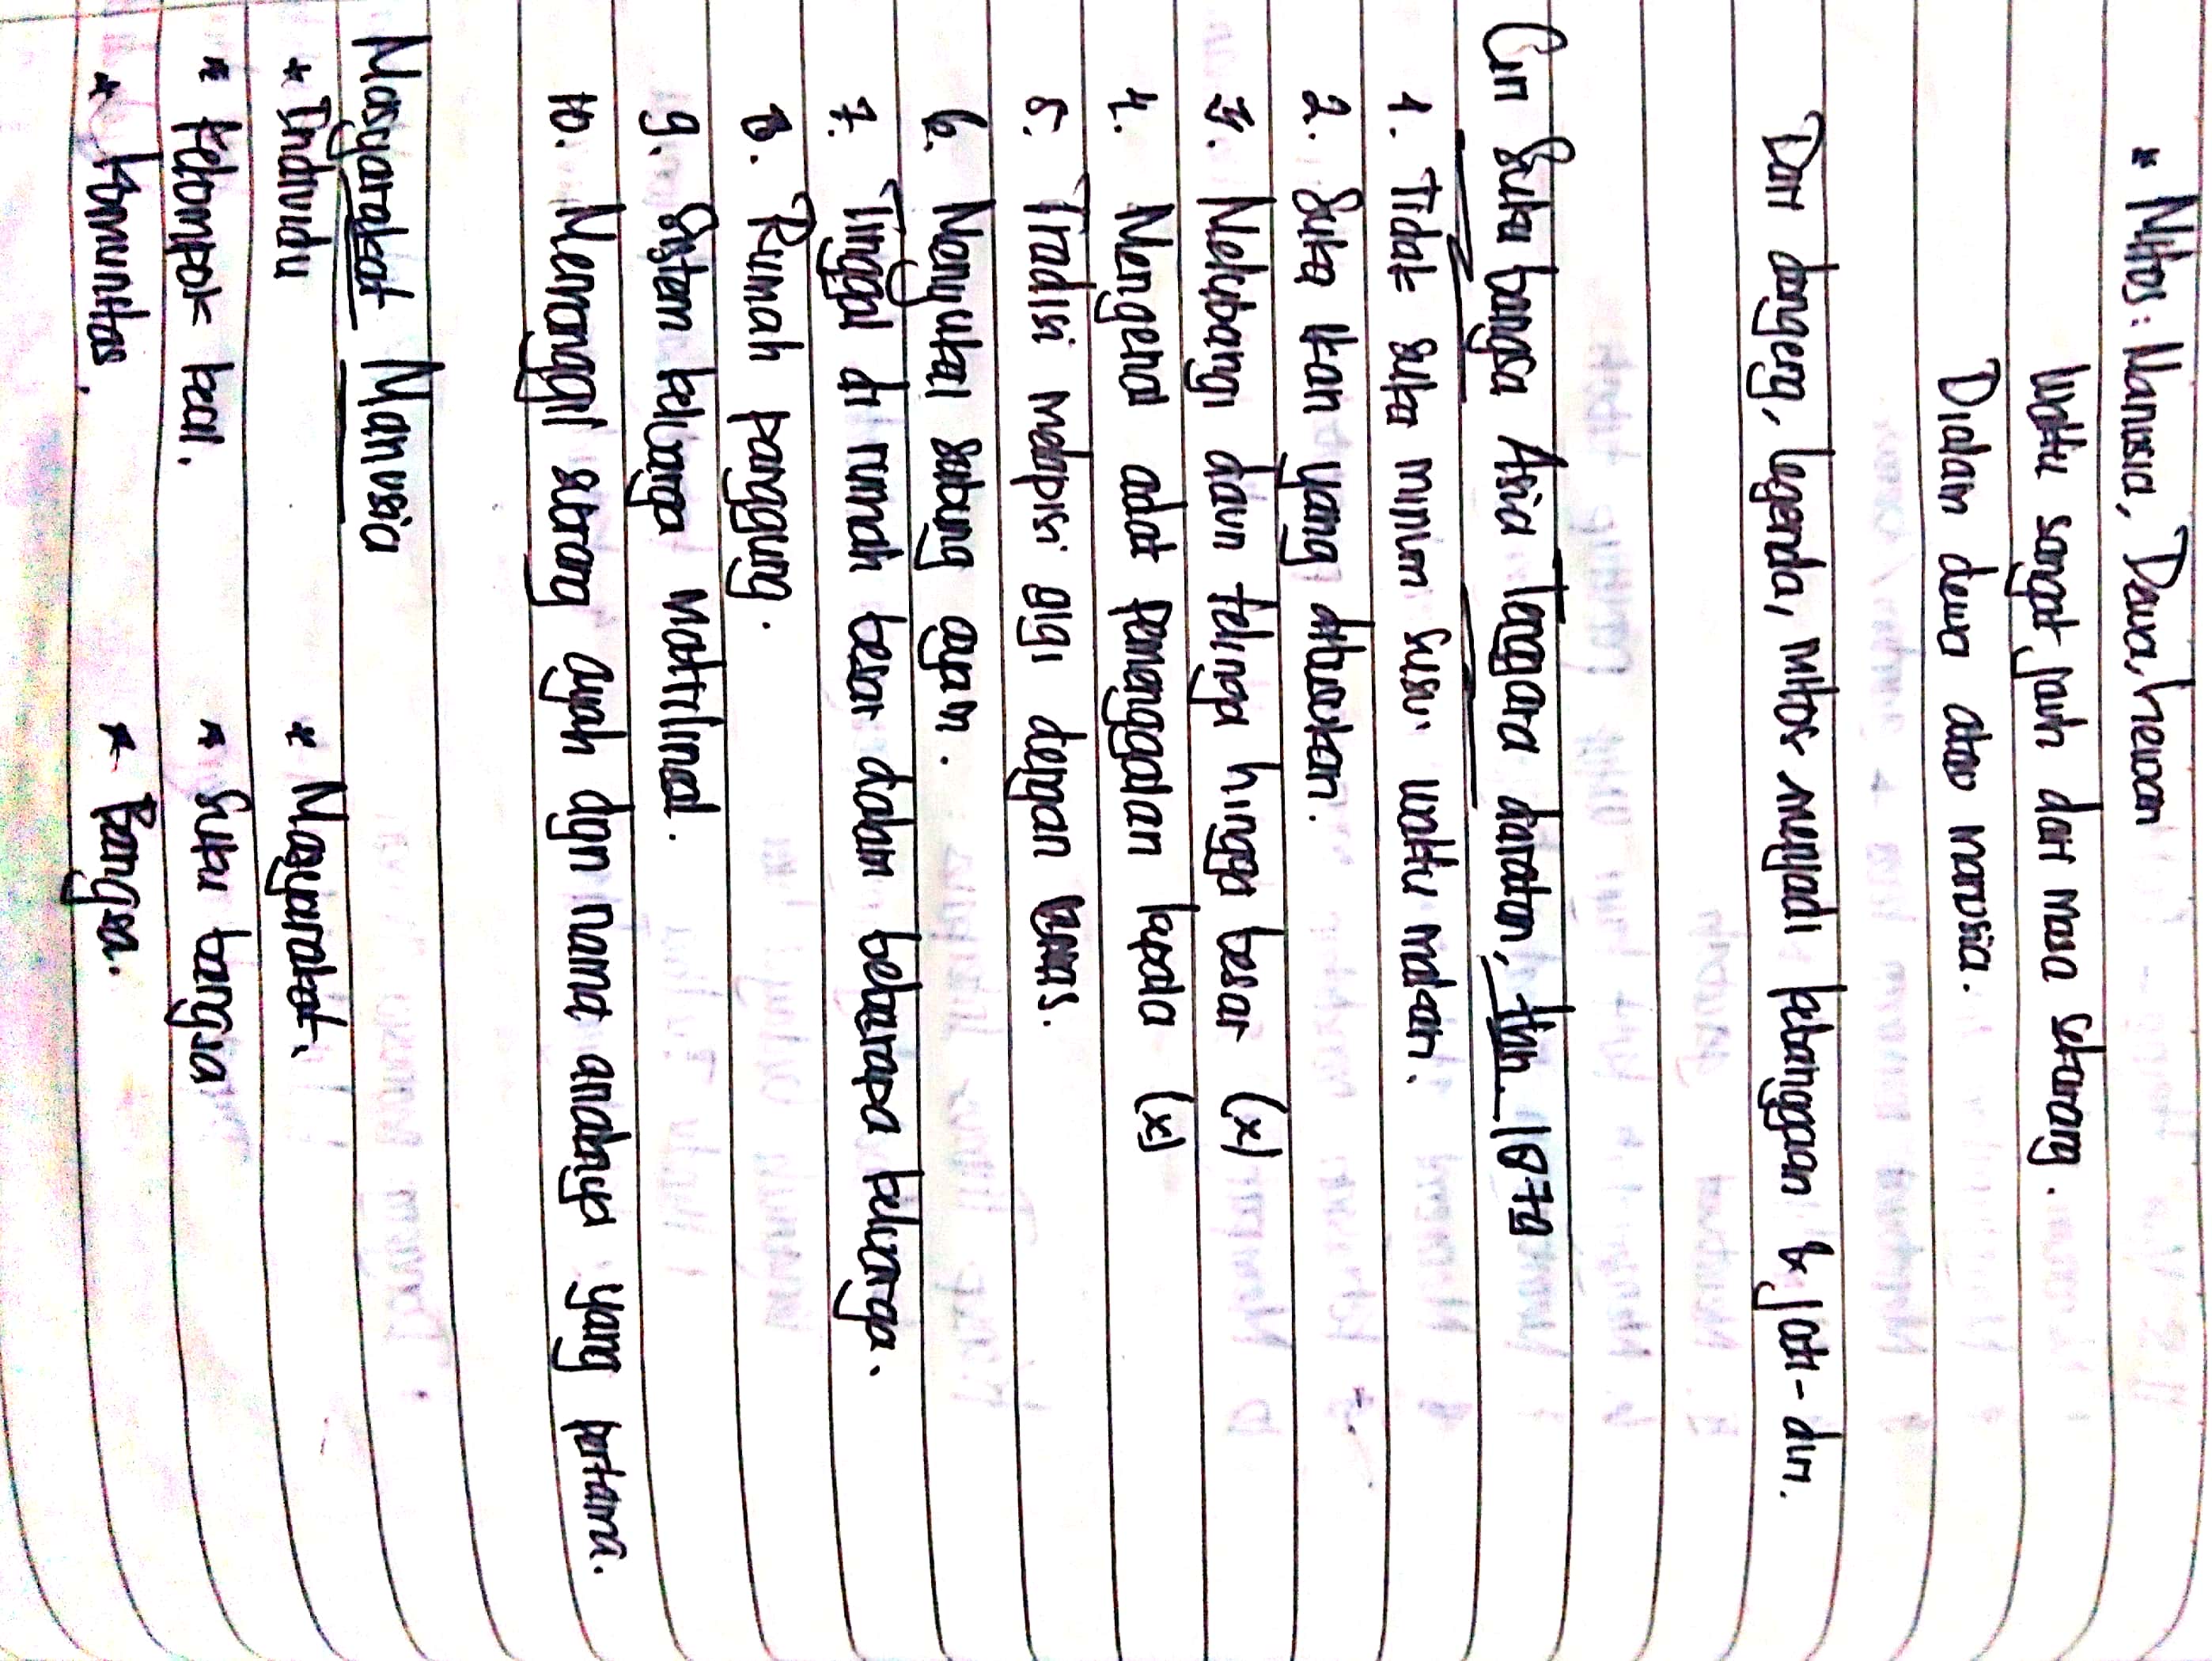 * Mitos: Manusia, Dewa, hewan
Waktu sangat jauh dari masa sekarang.
Dialam dewa atau manusia.
Dari dongeng, legenda, mitos menjadi kebanggaan & jati-diri.
Ciri Suku bangsa Asia Tenggara daratan, thn 1879
1. Tidak suka minum susu waktu makan.
2. Suka ikan yang dibusukan.
3. Melubangi daun telinga hingga besar (x)
4. Mengenal adat pemenggalan kepala (x)
5. Tradisi melapisi gigi dengan emas.
6. Menyukai sabung ayam.
7. Tinggal di rumah besar dalam beberapa keluarga.
8. Rumah panggung.
9. Sistem keluarga Matrilineal.
10. Memanggil seorang ayah dgn nama anaknya yang pertama.
Masyarakat Manusia
* Individu * Masyarakat.
* Kelompok kecil. * Suku bangsa
* Komunitas. * Bangsa.